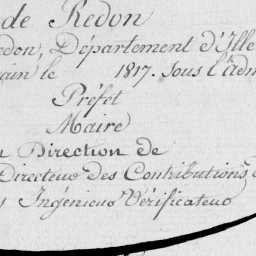 de Redon
edon, Département d'Ille
ain le 1817. Sous l'adm
Préfet
Maire
n Direction de
Directeur des Contributions
Ingénieur Vérificateur